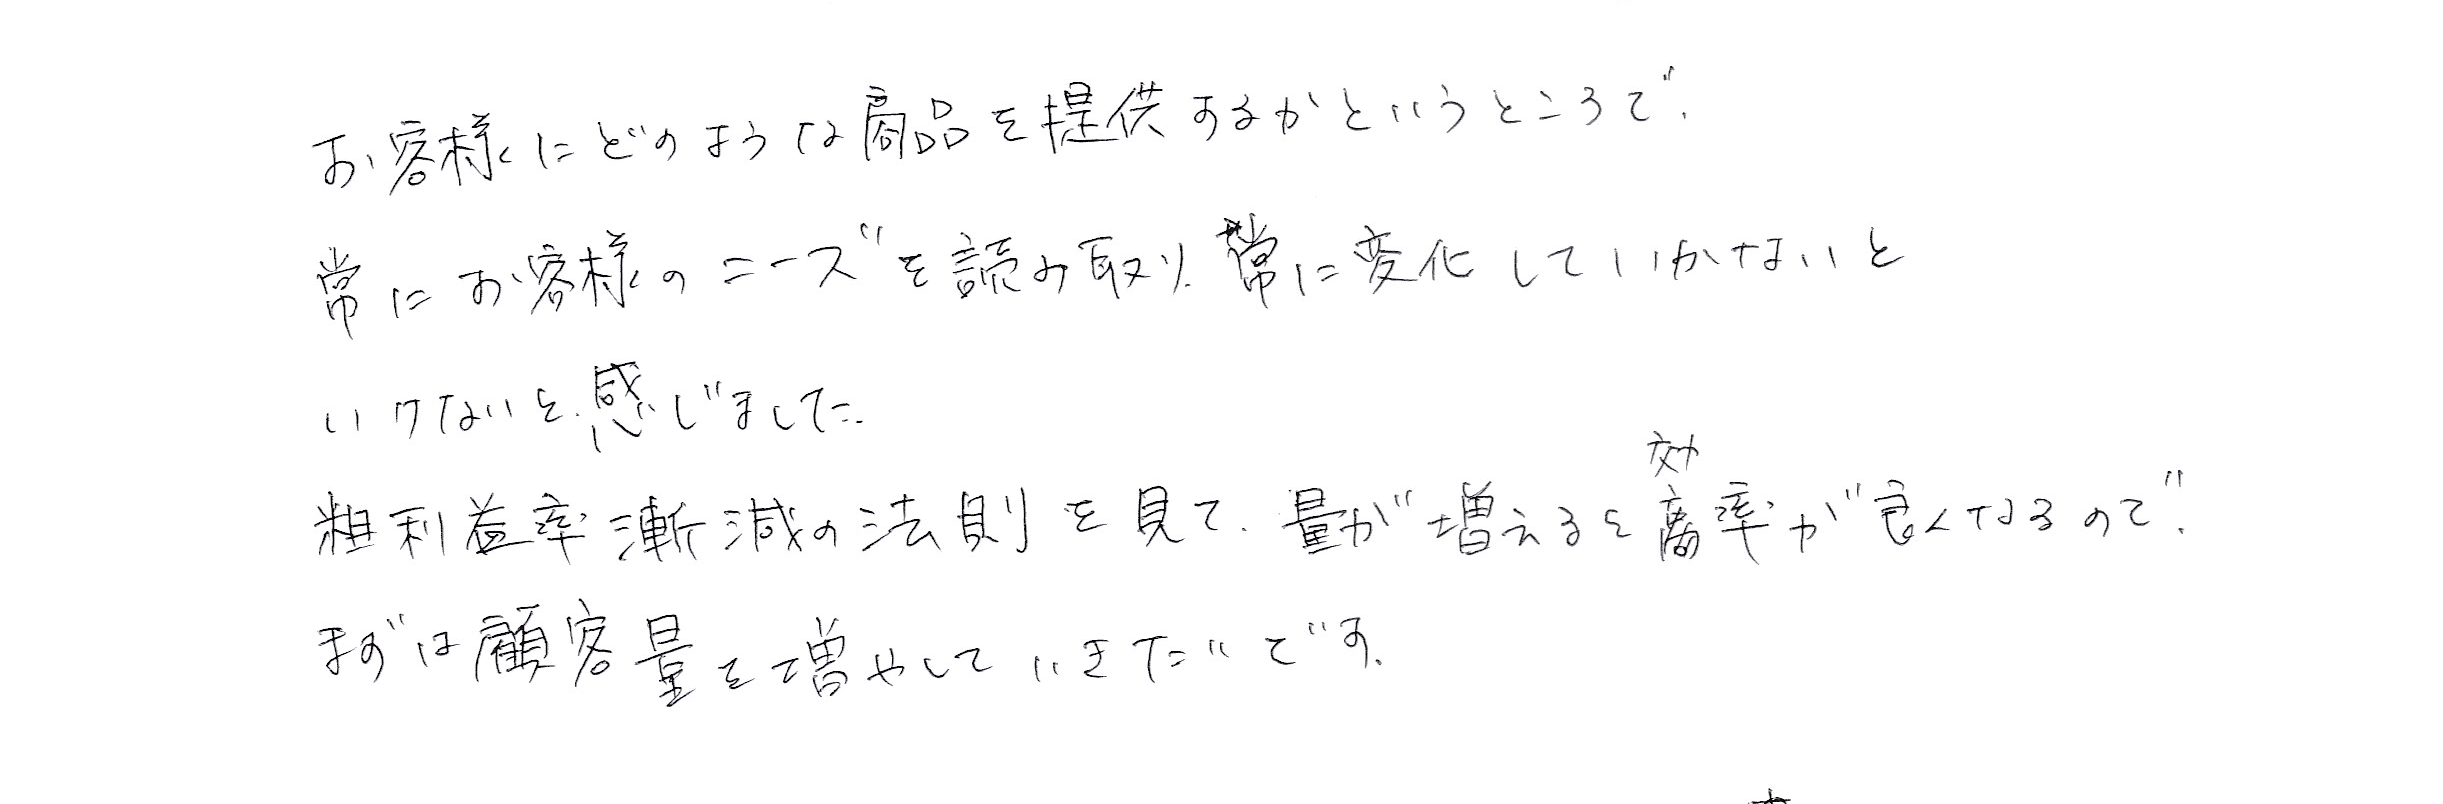 お客様にどのような商品を提供するかというところで、
常にお客様のニーズを読み取り、常に変化していかないと
いけないと感じました。
粗利益率漸減の法則を見て、量が増えると効率が良くなるので、
まずは顧客量を増やしていきたいです。